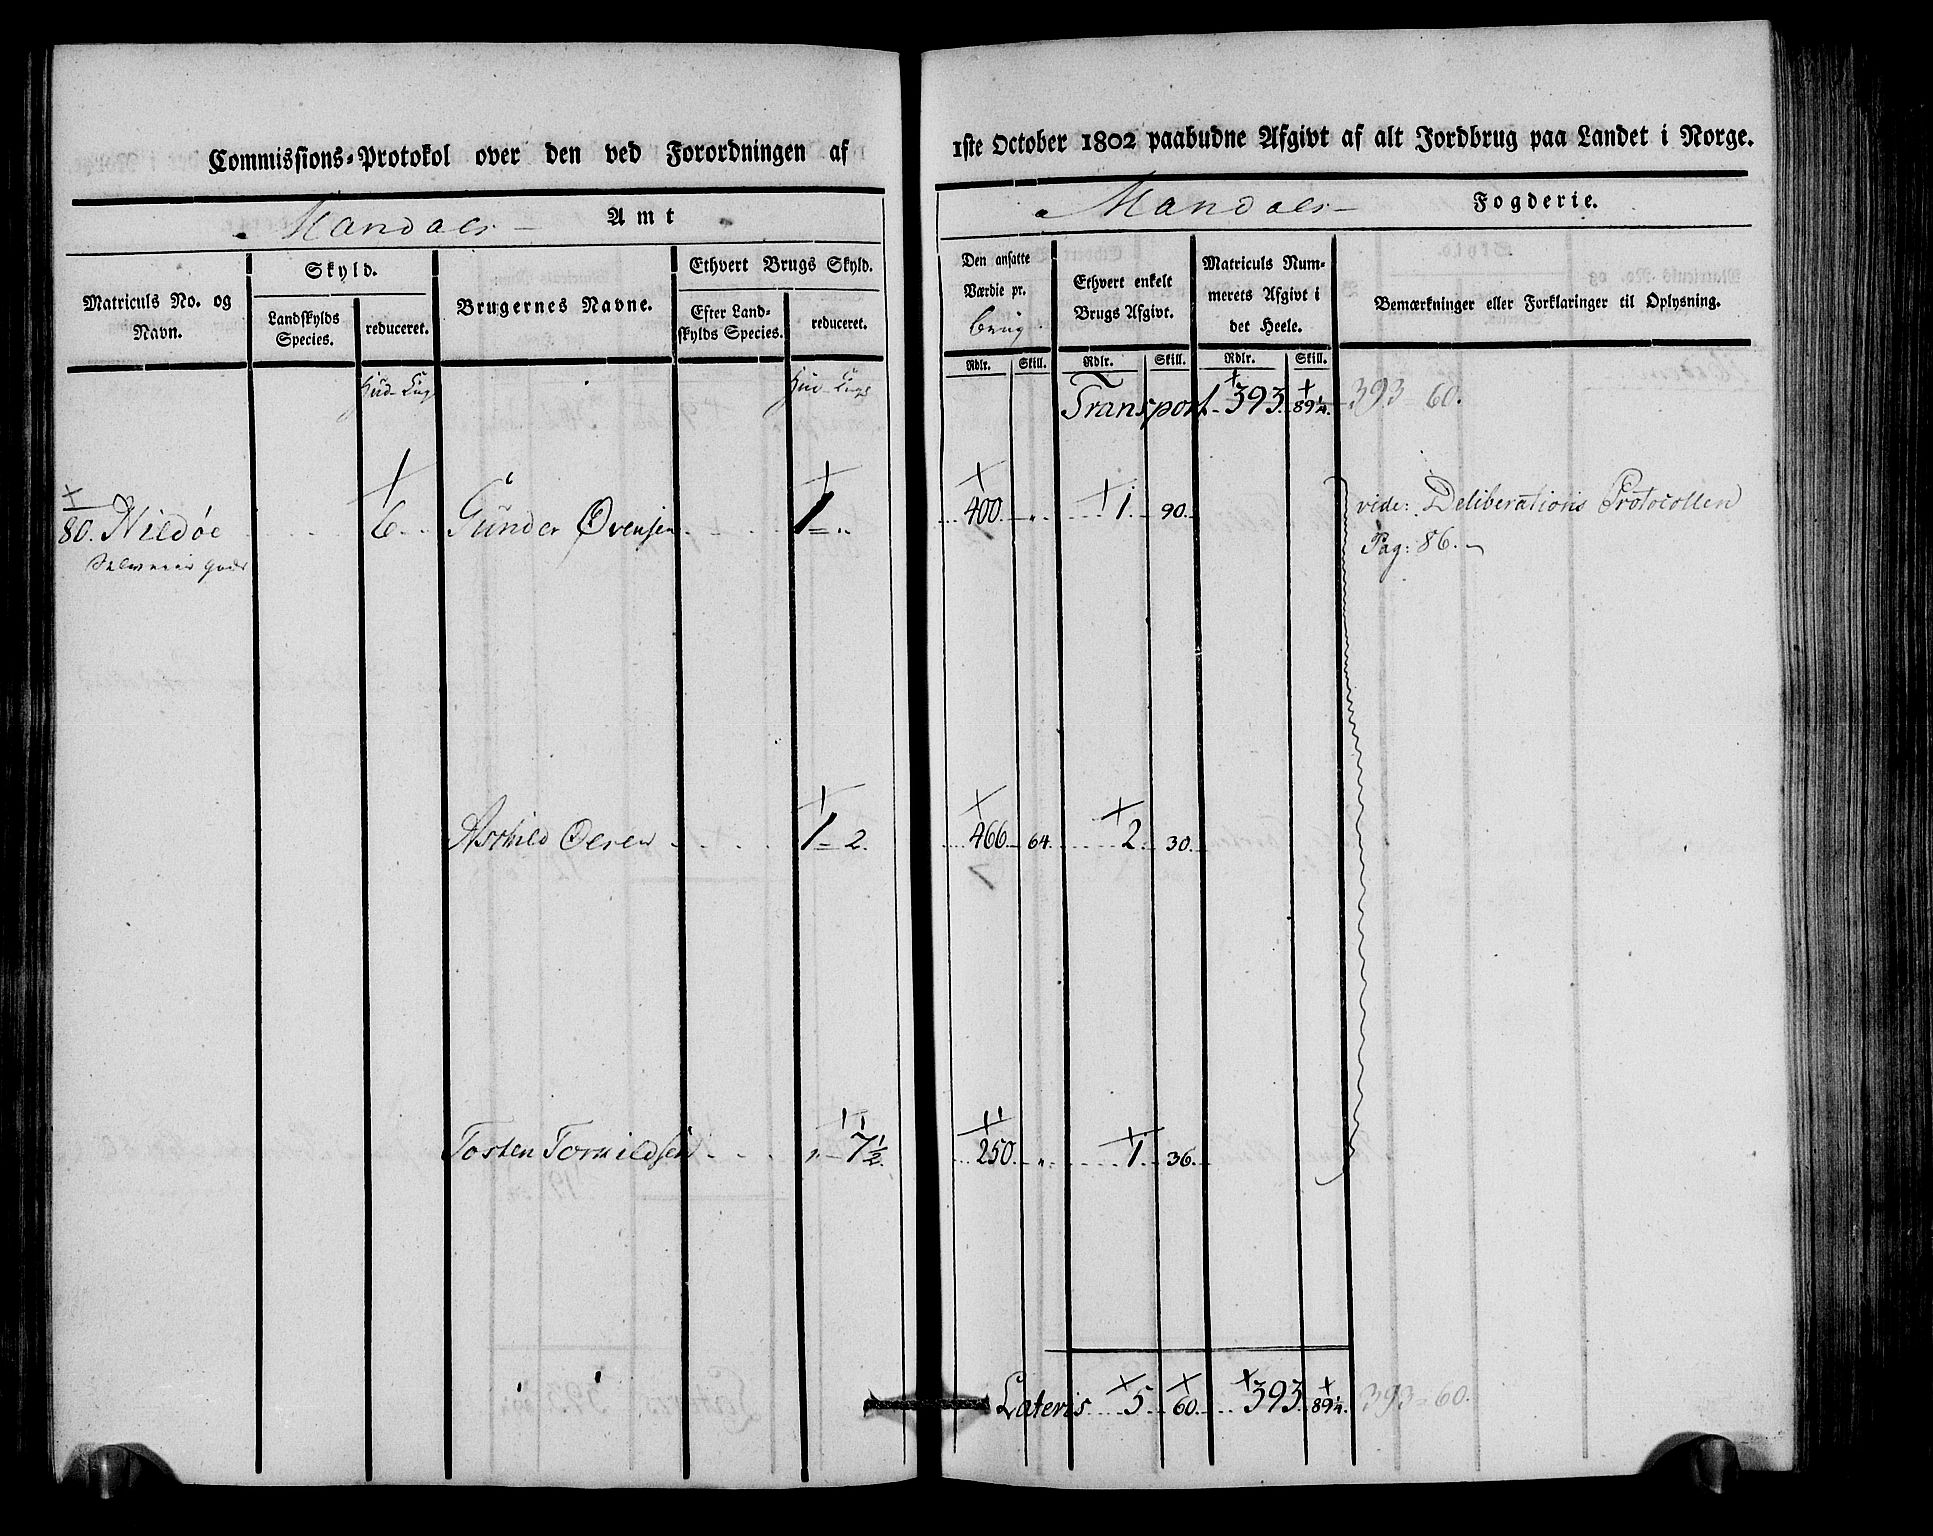 Commissions-Protokol over den ved Forordningen af
Mandals Amt
Matriculs No. og Navn.
Skyld.
Landskylds Species.
reduceret.
Brugernes Navne.
Ethvert Brugs Skyld.
Efter Landskylds Species.
reduceret.
80. Nildøe 6 Gunder Øvensen 1 = "
Selveier Gods
Aschild Olsen 1 = 2.
Tosten Tormildsen " 7 1/2
1ste October 1802 paabudne Afgivt af alt Jordbrug paa Landet i Norge.
Mandals Fogderie.
Den ansatte Værdie pr. brug
Ethvert enkelt Brugs Afgivt.
Matriculs Nummerets Afgivt i det Heele.
Bemærkninger eller Forklaringer til Oplysning.
Rdlr. Skill. Rdlr. Skill. Rdlr. Skill.
Transport 393. 89 1/4. 393 = 60.
400. " 1. 90. vide: Deliberations Protocollen
Pag: 86.
466. 64. 2. 30.
250. " 1. 36.
Lateris 5. 60. 393. 89 1/4. 393 = 60.